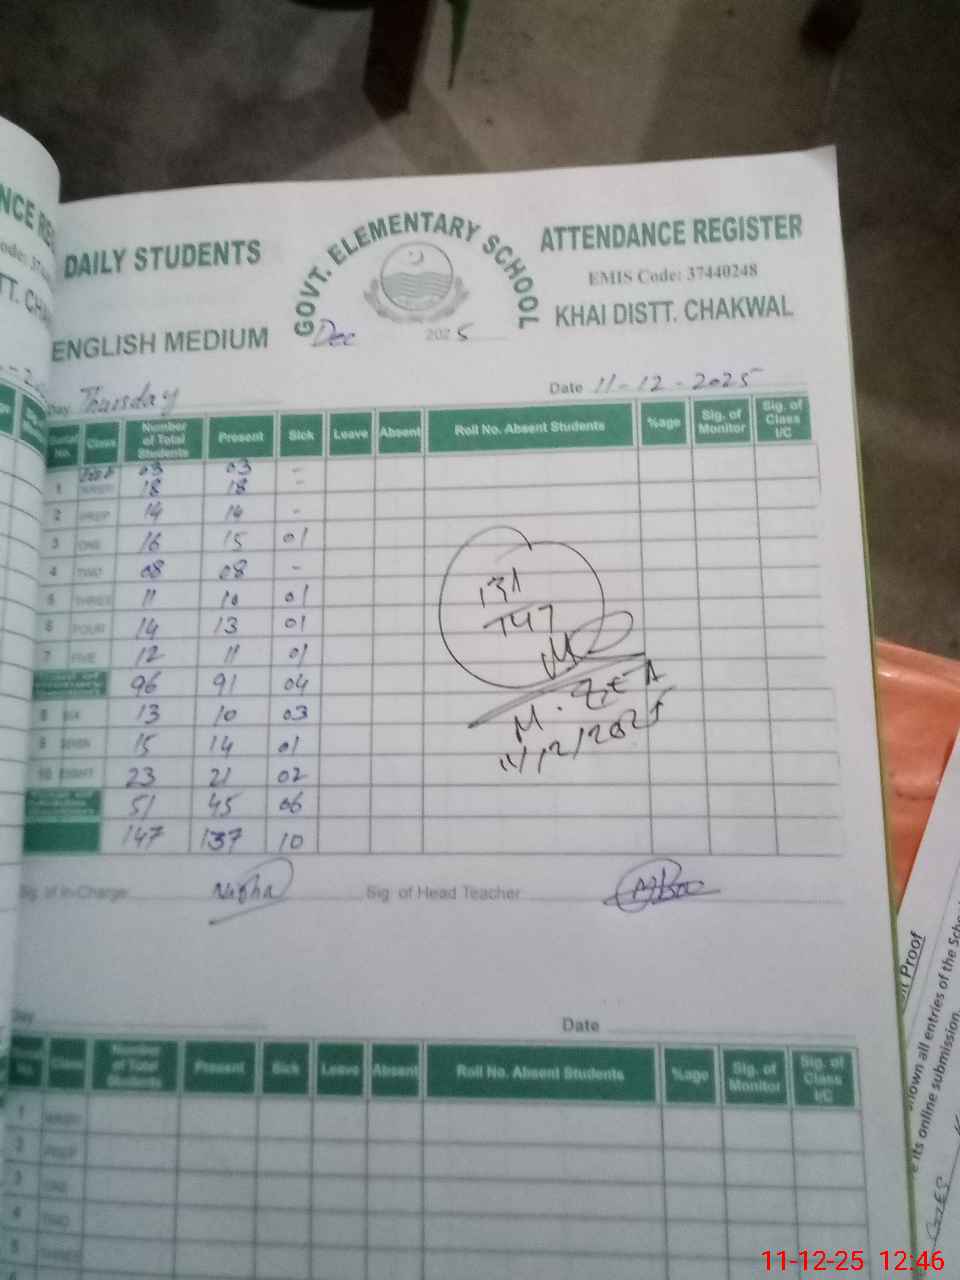 GOVT. ELEMENTARY SCHOOL
DAILY STUDENTS
ATTENDANCE REGISTER
EMIS Code: 37440248
ENGLISH MEDIUM
KHAI DISTT. CHAKWAL
Dec 2025
Day Thursday Date 11-12-2025
Serial No. Class Number of Total Students Present Sick Leave Absent Roll No. Absent Students %age Sig. of Monitor Sig. of Class I/C
03 03 -
1 18 18 -
2 PREP 14 14 -
3 ONE 16 15 01
4 TWO 08 08 -
5 THREE 11 10 01
6 FOUR 14 13 01
7 FIVE 12 11 01
96 91 04
8 SIX 13 10 03
9 SEVEN 15 14 01
10 EIGHT 23 21 02
51 45 06
147 137 10
131
147
11/12/2025
Sig. of In-Charge Sig. of Head Teacher
Day Date
No. Class Number of Total Students Present Sick Leave Absent Roll No. Absent Students %age Sig. of Monitor Sig. of Class I/C
1
2 PREP
3 ONE
4 TWO
5 THREE
Proof
all entries of the
its online submission.
11-12-25 12:46